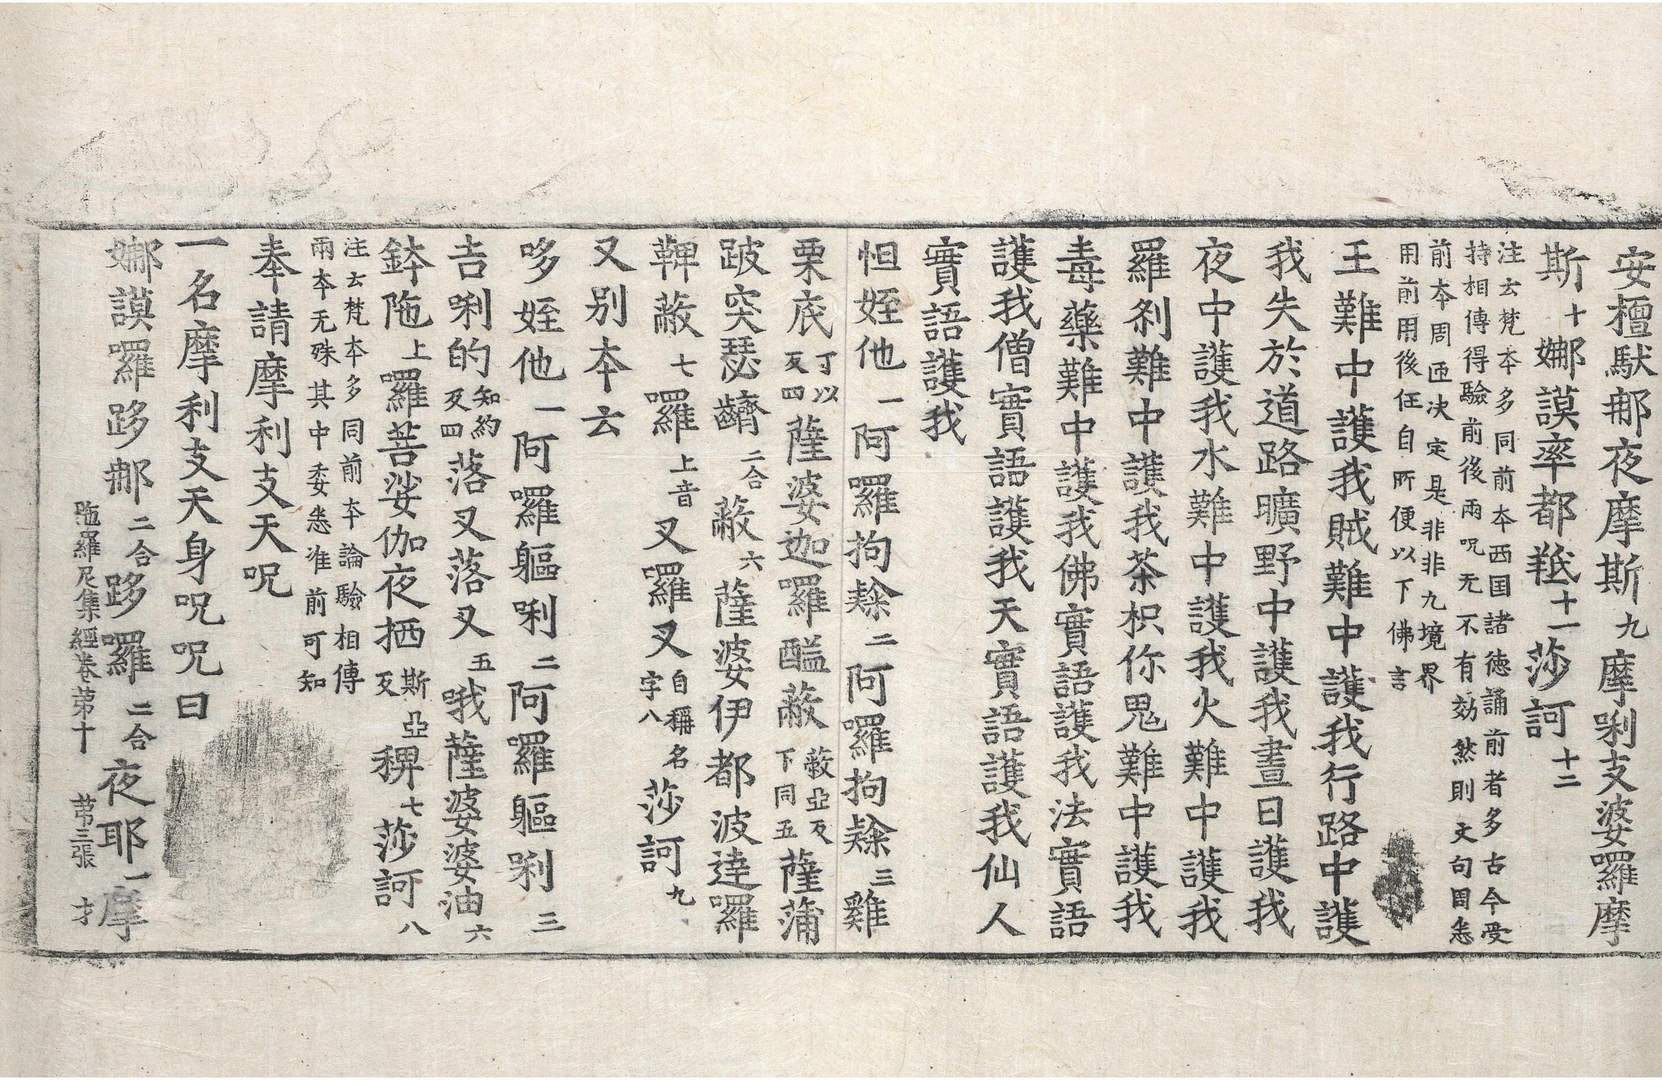 安檀馱那夜摩斯九摩唎支婆囉摩
斯十娜謨率都羝十一莎訶十二
注云梵本多同前本西国諸徳誦前者多古今受
持相傳得驗前後兩呪无不有効然則文句困悉
前本周迊决定是非非九境界
用前用後任自所便以下佛言
王難中護我賊難中護我行路中護
我失於道路曠野中護我晝日護我
夜中護我水難中護我火難中護我
羅刹難中護我荼枳你鬼難中護我
毒藥難中護我佛實語護我法實語
護我僧實語護我天實語護我仙人
實語護我
怛姪他一阿羅拘隸二阿羅拘隸三雞
栗底丁以反四薩婆迦羅醯蔽蔽亞反下同五薩蒲
跛突瑟齊二合蔽六薩婆伊都波達囉
鞞蔽七囉上音叉囉叉自稱名字八莎訶九
又别本云
哆姪他一阿囉軀唎二阿囉軀唎三
吉唎的知約反四落叉落叉五哦薩婆婆油六
鉢陁上囉菩娑伽夜拪斯亞反稗七莎訶八
注云梵本多同前本論驗相傳
兩本无殊其中委悉准前可知
奉請摩利支天呪
一名摩利支天身呪呪曰
娜謨囉跢那二合跢囉二合夜耶一摩
陁羅尼集經卷苐十 苐三張 才